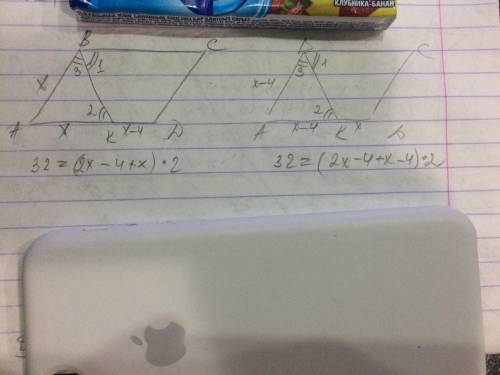 КЛУБНИКА-БАНАН
B C
x 3 1
2
A x K x-4 D
32=(2x-4+x)·2
C
x-4 3 1
2
A x-4 K x D
32=(2x-4+x-4)·2